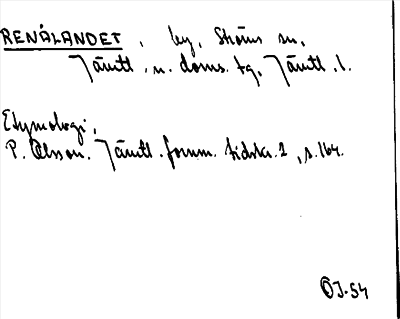 RENÅLANDET, by, Ströms sn,
Jämtl. n. doms. tg, Jämtl. l.
Etymologi,
P. Olsson. Jämtl. fornm. tidskr. 2, s. 164.
OJ-54